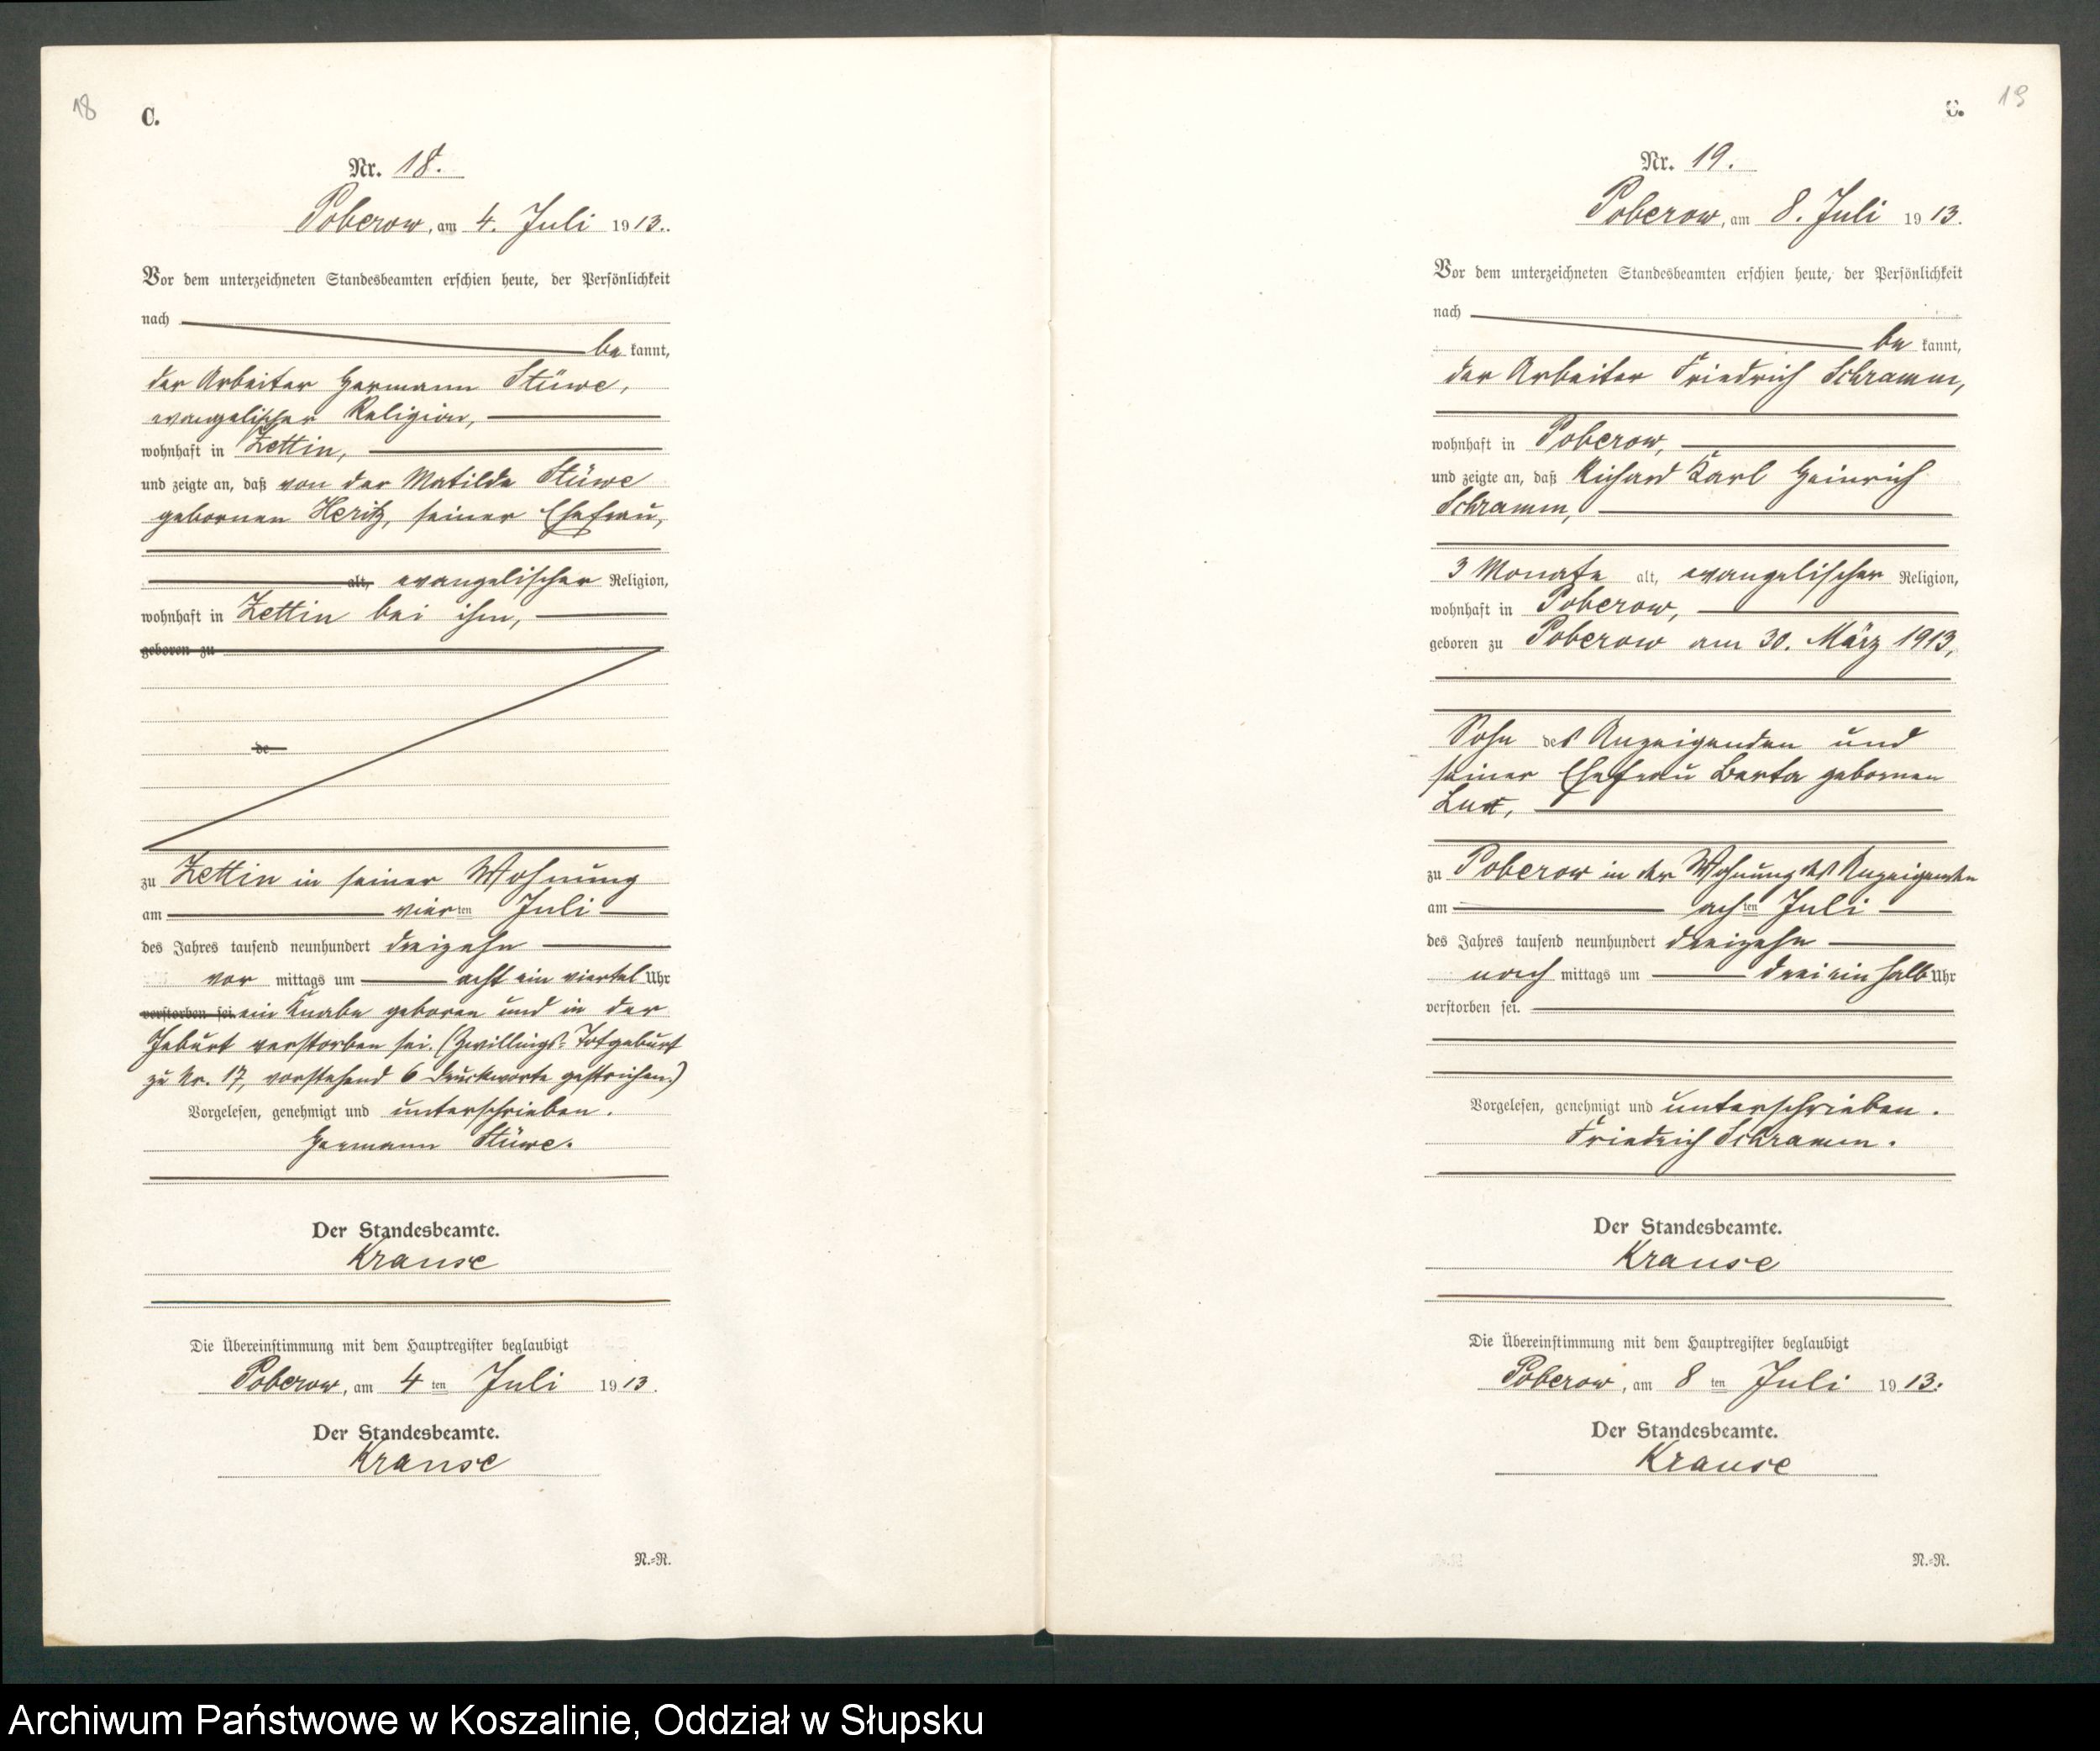 18
C.
Nr. 18.
Poberow, am 4. Juli 1913.
Vor dem unterzeichneten Standesbeamten erschien heute, der Persönlichkeit
nach
be kannt,
der Arbeiter Hermann Stüwe,
evangelischer Religion,
wohnhaft in Zettin,
und zeigte an, daß von der Matilde Stüwe
gebornen Heritz, seiner Ehefrau,
alt, evangelischer Religion,
wohnhaft in Zettin bei ihm,
geboren zu
de
zu Zettin in seiner Wohnung
am vierten Juli
des Jahres tausend neunhundert dreizehn
vor mittags um acht ein viertel Uhr
verstorben sei. ein Knabe geboren und in der
Geburt verstorben sei. (Zwillings-Totgeburt
zu Nr. 17, vorstehend 6 Druckworte gestrichen.)
Vorgelesen, genehmigt und unterschrieben.
Hermann Stüwe.
Der Standesbeamte.
Krause
Die Übereinstimmung mit dem Hauptregister beglaubigt
Poberow, am 4 ten Juli 1913.
Der Standesbeamte.
Krause
N.-R.
19
C.
Nr. 19.
Poberow, am 8. Juli 1913.
Vor dem unterzeichneten Standesbeamten erschien heute, der Persönlichkeit
nach
be kannt,
der Arbeiter Friedrich Schramm,
wohnhaft in Poberow,
und zeigte an, daß Richard Karl Heinrich
Schramm,
3 Monate alt, evangelischer Religion,
wohnhaft in Poberow,
geboren zu Poberow am 30. März 1913,
Sohn des Anzeigenden und
seiner Ehefrau Berta gebornen
Lux,
zu Poberow in der Wohnung des Anzeigenden
am achten Juli
des Jahres tausend neunhundert dreizehn
nach mittags um drei ein halb Uhr
verstorben sei.
Vorgelesen, genehmigt und unterschrieben.
Friedrich Schramm.
Der Standesbeamte.
Krause
Die Übereinstimmung mit dem Hauptregister beglaubigt
Poberow, am 8 ten Juli 1913.
Der Standesbeamte.
Krause
N.-R.
Archiwum Państwowe w Koszalinie, Oddział w Słupsku